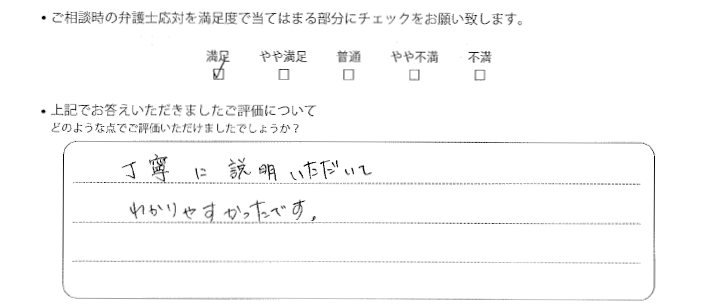 ・ご相談時の弁護士応対を満足度で当てはまる部分にチェックをお願い致します。
満足 やや満足 普通 やや不満 不満
☑ ☐ ☐ ☐ ☐
・上記でお答えいただきましたご評価について
どのような点でご評価いただけましたでしょうか？
丁寧に説明いただいて
わかりやすかったです。